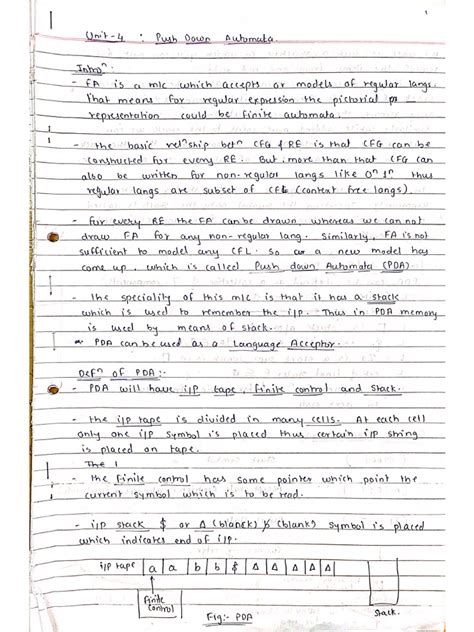 Unit-4 : Push Down Automata.
Intro^n:
- FA is a m/c which accepts or models of regular langs.
That means for regular expression the pictorial
representation could be finite automata.
- the basic rel^n ship bet^n CFG & RE is that CFG can be
constructed for every RE. But more than that CFG can
also be written for non-regular langs like 0^n 1^n thus
regular langs are subset of CFL (context free langs).
- for every RE the FA can be drawn, whereas we can not
draw FA for any non-regular lang. Similarly, FA is not
sufficient to model any CFL. So a new model has
come up, which is called Push down Automata (PDA).
- the speciality of this m/c is that it has a stack
which is used to remember the i/p. Thus in PDA memory
is used by means of stack.
PDA can be used as a Language Acceptor.
Def^n of PDA:-
- PDA will have i/p tape, finite control and stack.
- the i/p tape is divided in many cells. At each cell
only one i/p symbol is placed thus certain i/p string
is placed on tape.
The
- the finite control has some pointer which point the
current symbol which is to be read.
- i/p stack $ or Δ (blanck) (blank) symbol is placed
which indicates end of i/p.
i/p tape a a b b $ Δ Δ Δ Δ Δ
finite
control
Stack.
Fig:- PDA